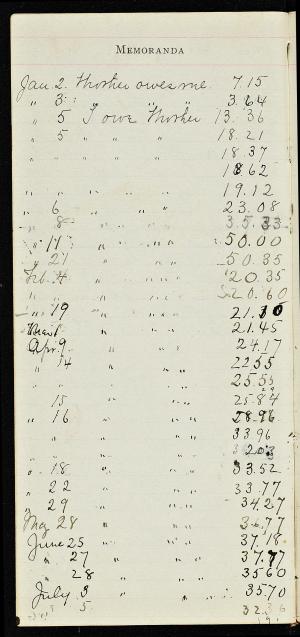 MEMORANDA
Jan 2. Mother owes me 7.15
" 3 " " " 3.64
" 5 I owe Mother 13.36
" 5 " " " 18.21
" " " " 18.37
" 18.62
" " " " 19.12
" 6 " " " 23.08
" 8 " " " 35.33
" 11 " " " 50.00
" 21 " " " 50.35
Feb. 4 " " " 20.35
" " " " 20.60
" 19 " " " 21.30
Mar 1 " " " 21.45
Apr. 9 " " " 24.17
" 14 " " " 22.55
" " " 25.55
15 " " " 25.84
" 16 " " " 28.96
" " " " 33.96
" " " "
" 18 " " " 33.52
" 22 " " " 33.77
" 29 " " " 34.27
May 28 " " " 36.77
June 25 " " " 37.18
" 27 " " " 37.77
" 28 " " " 35.60
July 3 " " " 35.70
" 5 32.36